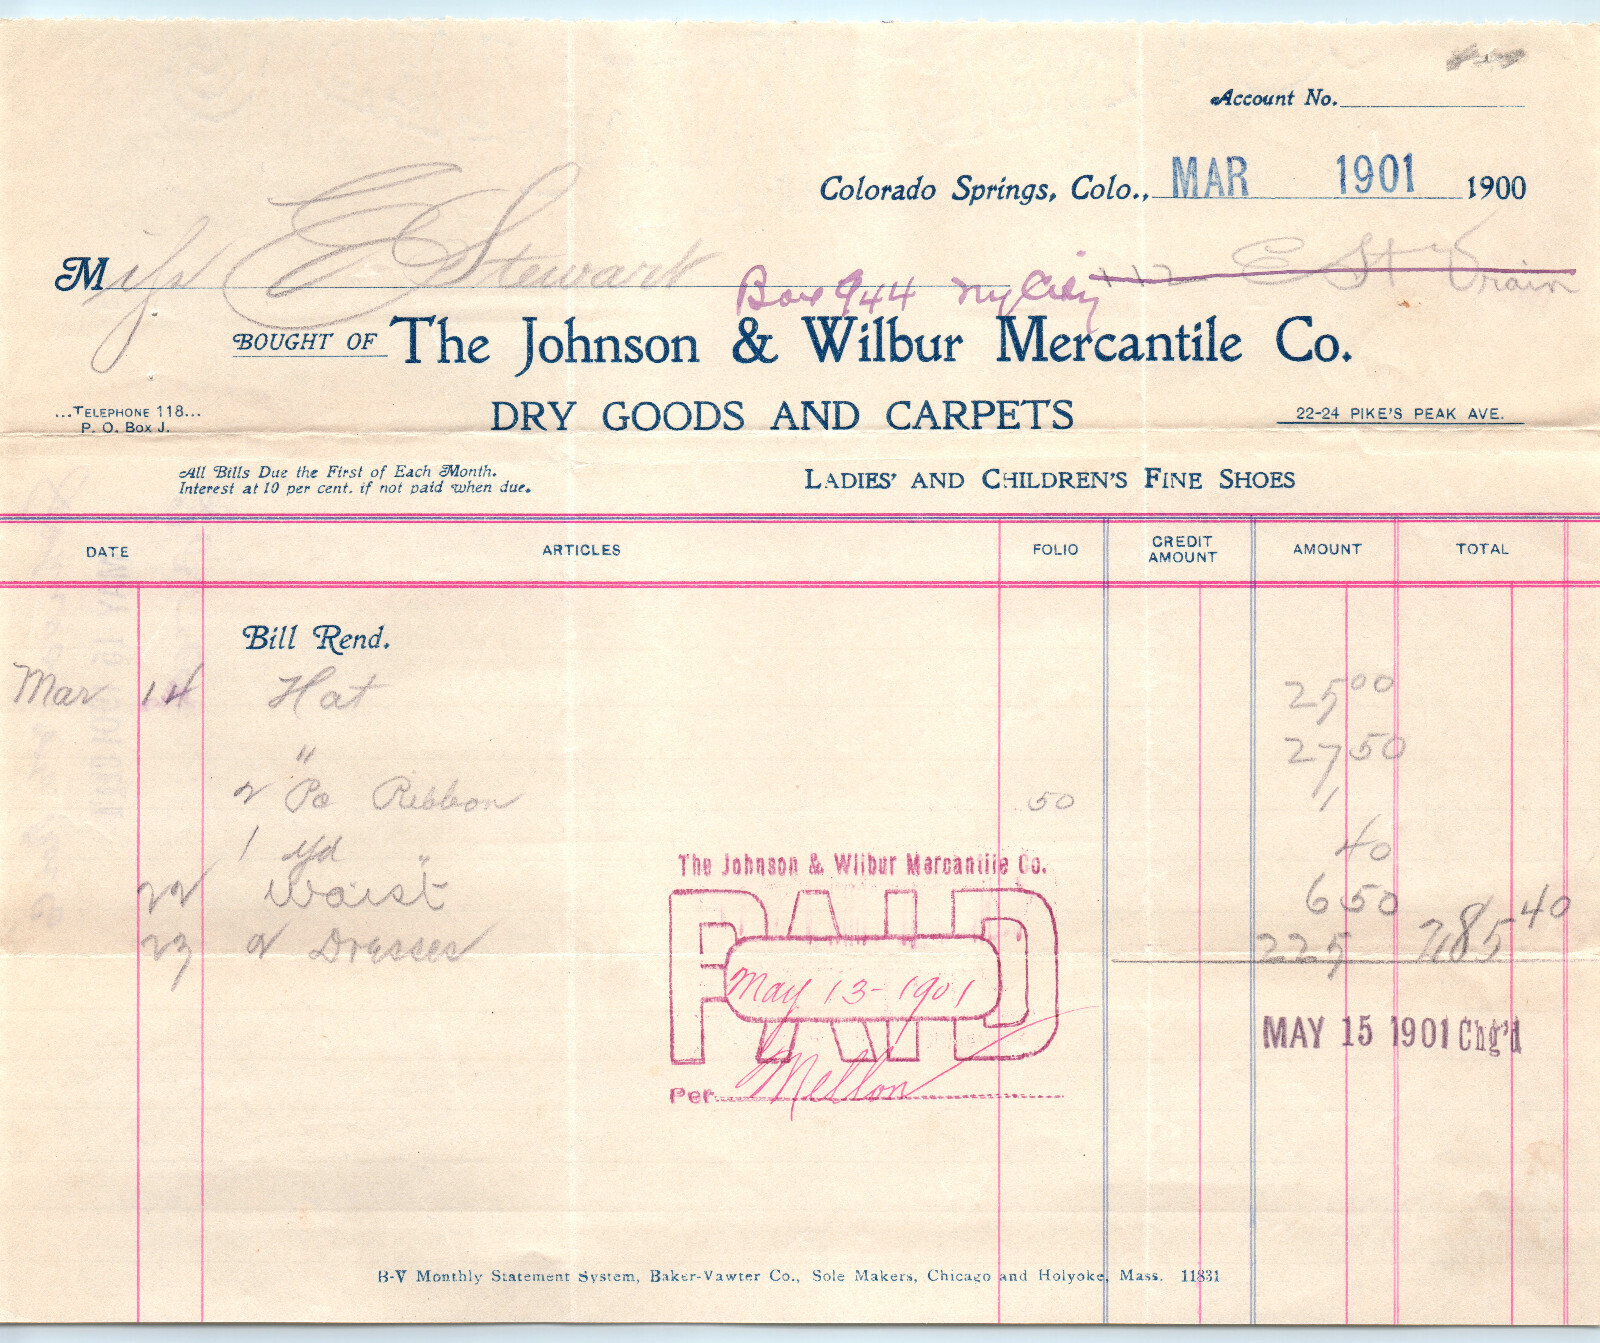 Account No.
Colorado Springs, Colo., MAR 1901 1900
Miss E Stewart Box 944 112 E St Vrain
BOUGHT OF The Johnson & Wilbur Mercantile Co.
...TELEPHONE 118...
P. O. Box J.
DRY GOODS AND CARPETS
22-24 PIKE'S PEAK AVE.
All Bills Due the First of Each Month.
Interest at 10 per cent. if not paid when due.
LADIES' AND CHILDREN'S FINE SHOES
DATE ARTICLES FOLIO CREDIT AMOUNT AMOUNT TOTAL
Bill Rend.
Mar 14 Hat 25 00
" 27 50
2 Pc Ribbon 50 1
1 yd " 40
22 Waist 6 50
23 2 Dresses 225 285 40
The Johnson & Wilbur Mercantile Co.
PAID
May 13-1901
Per Mellon
MAY 15 1901 Chg'd
B-V Monthly Statement System, Baker-Vawter Co., Sole Makers, Chicago and Holyoke, Mass. 11831